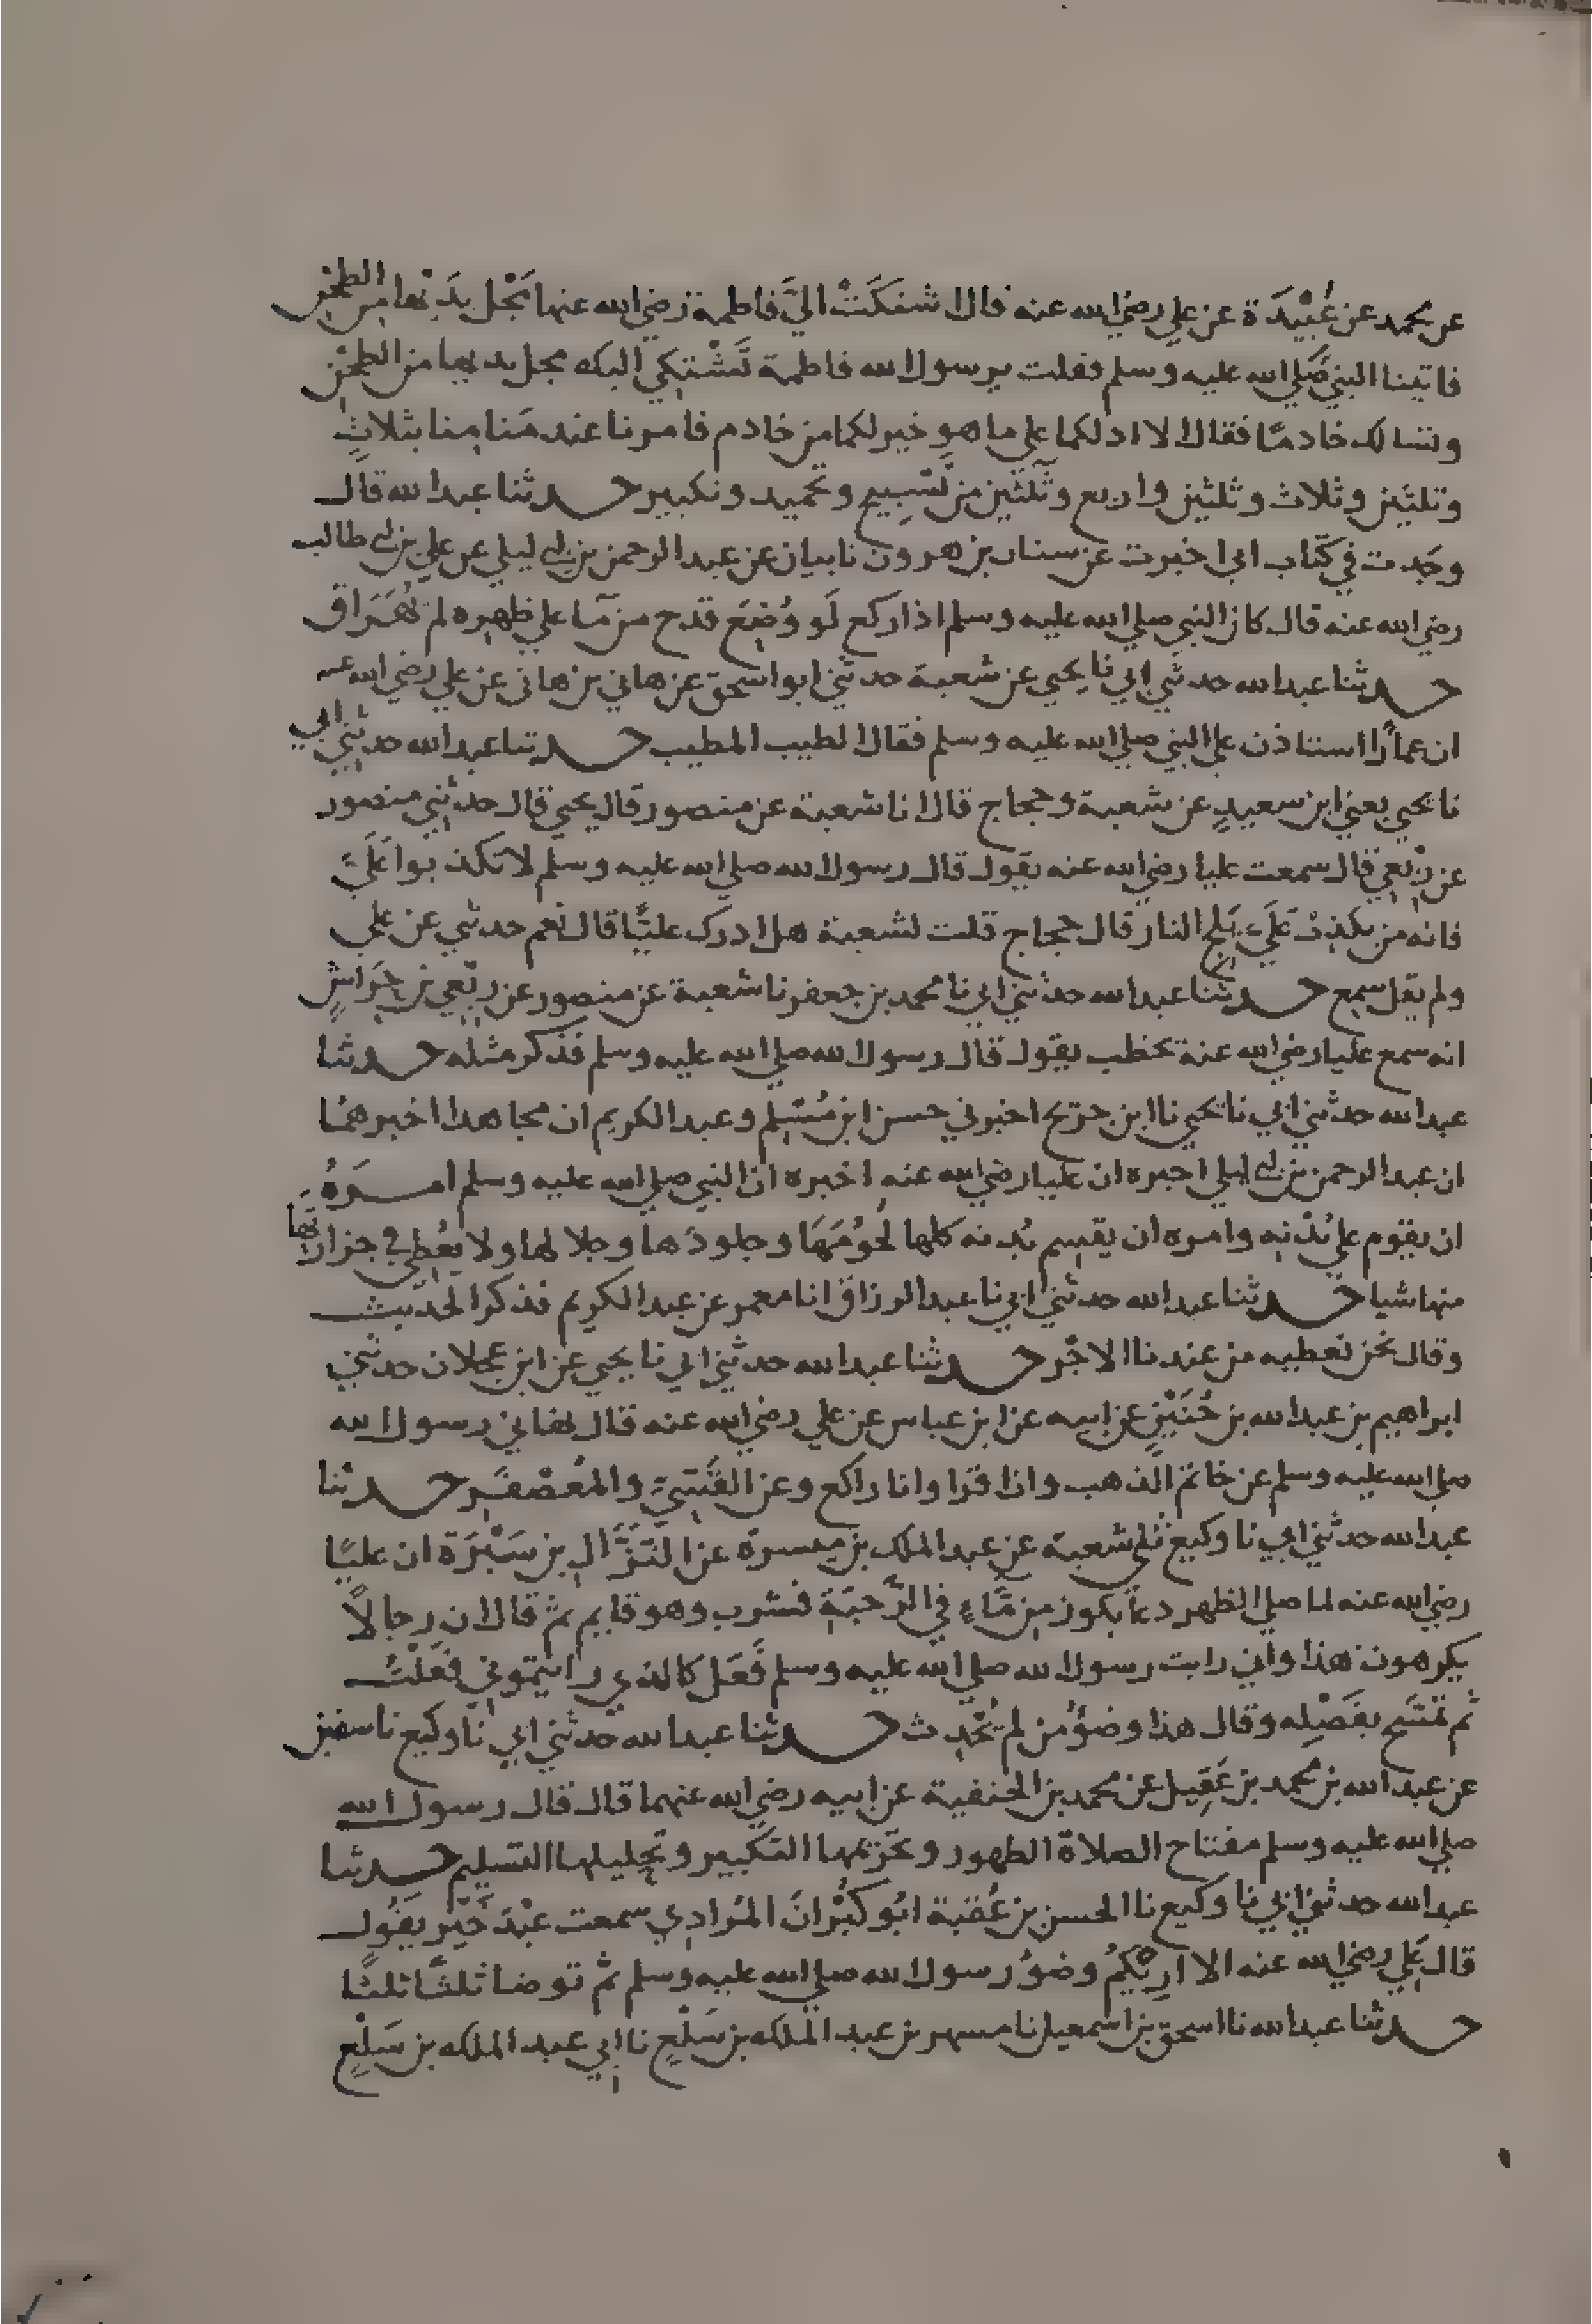 عن محمد عن عُبَيْدَة عن علي رضي الله عنه قال اشتكَتْ اليَّ فاطمة رضي الله عنها مَجْل يدَيْها من الطحْن
فاتينا النبي صَلي الله عليه وسلم فقلت يرسول الله فاطمة تَشْتكي اليك مجل يديها من الطحْن
وتسالك خادمًا فقال الا ادلكما علي ما هو خير لكما من خادم فامرنا عند مَنامِنا بثلاثٍ
وثلثين وثلاث وثلثين واربع وثَلثين من تَسْبِيح وتحميد وتكبير حدثنا عبد الله قال
وجَدت في كتاب ابي اخبرت عن سنان بن هرون نا بيان عن عبد الرحمن بن ابي ليلي عن علي بن ابي طالب
رضي الله عنه قال كان النبي صلي الله عليه وسلم اذا ركع لَو وُضِعَ قدح من مآ علي ظهره لم يُهَرَاق
حدثنا عبد الله حدثني ابي نا يحيي عن شعبة حدثني ابو اسحق عن هاني بن هاني عن علي رضي الله عنه
ان عمارًا استاذن علي النبي صلي الله عليه وسلم فقال الطيب المطيب حدثنا عبد الله حدثني ابي
نا يحيي يعني ابن سعيدٍ عن شعبة وحجاج قال انا شعبة عن منصور قال يحيي قال حدثني منصور
عن رِبْعي قال سمعت عليا رضي الله عنه يقول قال رسول الله صلي الله عليه وسلم لا تكذبوا عَلَيَّ
فانه من يكذِبْ عَلَيَّ يَلِج النار قال حجاج قلت لشعبة هل ادرك عليًّا قال نَعم حدثني عن علي
ولم يقل سمع حدثنا عبد الله حدثني ابي نا محمد بن جعفر نا شعبة عن منصور عن رِبْعي بن حِرَاشٍ
انه سمع عليا رضي الله عنه يخطب يقول قال رسول الله صلي الله عليه وسلم فذكر مثله حدثنا
عبد الله حدثني ابي نا يحيي نا ابن جريج اخبرني حسن ابن مُسْلِم وعبد الكريم ان مجاهدا اخبرهمُا
ان عبد الرحمن بن ابي ليلي اخبره ان عليا رضي الله عنه اخبره ان النبي صلي الله عليه وسلم امَرَهُ
ان يقوم علي بُدْنِه وامره ان يقسِم بُدنه كلها لُحُومَهَا وجلودَها وجلالها ولا يُعْطِي في جزارتها
منها شيا حدثنا عبد الله حدثني ابي نا عبد الرزاق انا معمر عن عبد الكريم فذكر الحَديث
وقال نحن نُعطيه من عندنا الاجْر حدثنا عبد الله حدثني ابي نا يحيي عن ابن عجلان حدثني
ابراهيم بن عبد الله بن حُنَيْنٍ عن ابيه عن ابن عباس عن علي رضي الله عنه قال نهاني رسول الله
صلي الله عليه وسلم عن خاتم الذهب وان اقرا وانا راكع وعن القَسّيِّ والمُعَصْفَر حدثنا
عبد الله حدثني ابي نا وكيع نا شعبة عن عبد الملك بن ميسرة عن النَزَّالِ بن سَبْرَة ان عليًا
رضي الله عنه لما صلي الظهر دعَا بكوز من مَّاءٍ في الرَّحبَةِ فشرب وهو قايم ثم قال ان رجالًا
يكرهون هذا واني رايت رسول الله صلي الله عليه وسلم فَعَل كالذي رايتموني فَعَلْتُ
ثُم تمسَّح بفَضْلِه وقال هذا وضوُ من لم يُحْدِث حدثنا عبد الله حدثني ابي نا وكيع نا سفين
عن عبد الله بن محمد بن عَقِيل عن محمد بن الحنفية عن ابيه رضي الله عنهما قال قال رسول الله
صلي الله عليه وسلم مفتاح الصلاة الطهور وتحريمها التكبير وتحليلها التسليم حدثنا
عبد الله حدثني ابي نا وكيع نا الحسن بن عُقبة ابُو كُبْرانَ المُرادِي سمعت عبْدَ خَيْر يقُول
قال عَلي رضي الله عنه الا ارِيْكُم وضوُ رسول الله صلي الله عليه وسلم ثم توضا ثلثًا ثلثًا
حدثنا عبد الله نا اسحق بن اسمعيل نا مسهر بن عبد الملك بن سَلْعٍ نا ابي عبد الملك بن سَلْعٍ